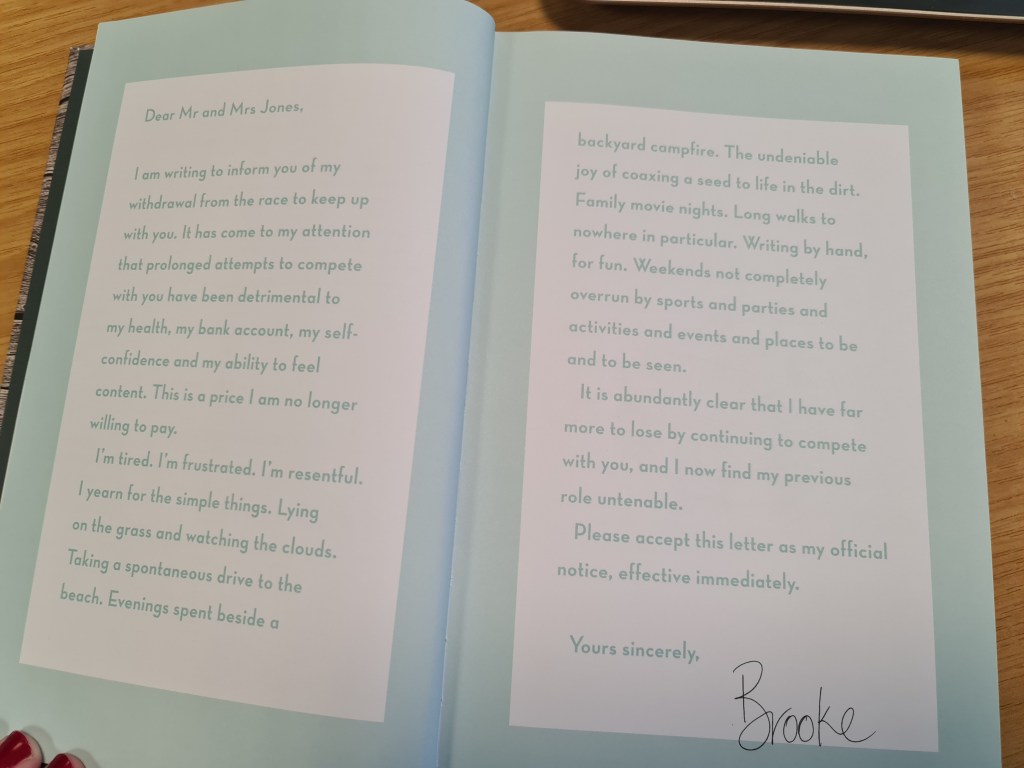 Dear Mr and Mrs Jones,
I am writing to inform you of my
withdrawal from the race to keep up
with you. It has come to my attention
that prolonged attempts to compete
with you have been detrimental to
my health, my bank account, my self-
confidence and my ability to feel
content. This is a price I am no longer
willing to pay.
I'm tired. I'm frustrated. I'm resentful.
I yearn for the simple things. Lying
on the grass and watching the clouds.
Taking a spontaneous drive to the
beach. Evenings spent beside a
backyard campfire. The undeniable
joy of coaxing a seed to life in the dirt.
Family movie nights. Long walks to
nowhere in particular. Writing by hand,
for fun. Weekends not completely
overrun by sports and parties and
activities and events and places to be
and to be seen.
It is abundantly clear that I have far
more to lose by continuing to compete
with you, and I now find my previous
role untenable.
Please accept this letter as my official
notice, effective immediately.
Yours sincerely,
Brooke